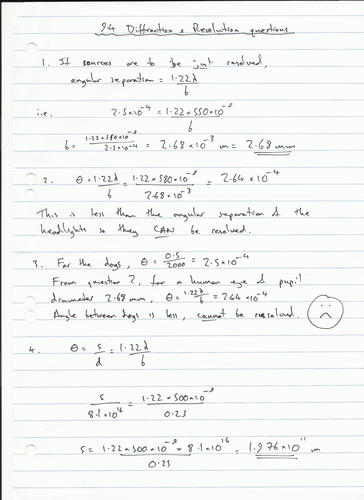 9.4 Diffraction & Resolution questions
1. If sources are to be just resolved,
angular separation = 1.22λ / b
i.e. 2.5×10⁻⁴ = 1.22 × 550×10⁻⁹ / b
b = 1.22 × 550×10⁻⁹ / 2.5×10⁻⁴ = 2.68×10⁻³ m = 2.68 mm
2. θ = 1.22λ / b = 1.22 × 580×10⁻⁹ / 2.68×10⁻³ = 2.64×10⁻⁴
This is less than the angular separation of the
headlights so they CAN be resolved.
3. For the dogs, θ = 0.5 / 2000 = 2.5×10⁻⁴
From question 2, for a human eye of pupil
diameter 2.68 mm, θ = 1.22λ / b = 2.64×10⁻⁴
Angle between dogs is less, cannot be resolved.
4. θ = s / d = 1.22λ / b
s / 8.1×10¹⁶ = 1.22 × 500×10⁻⁹ / 0.25
s = 1.22 × 500×10⁻⁹ × 8.1×10¹⁶ / 0.25 = 1.976×10¹¹ m